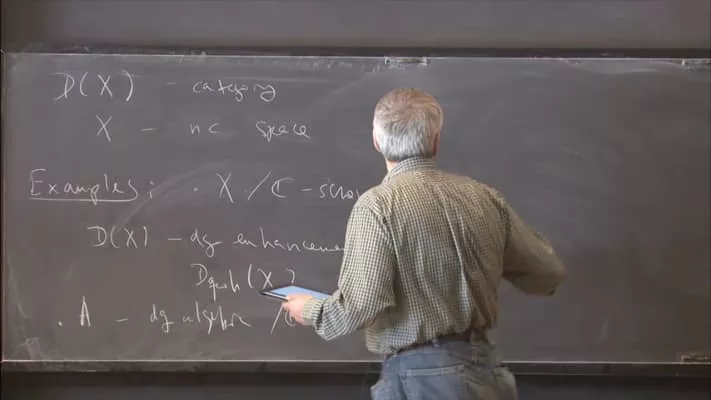 D(X) – category
X – nc space
Examples: · X / ℂ -
D(X) – dg enhancemen
D_qcoh(X)
· A – dg algebra / ℂ